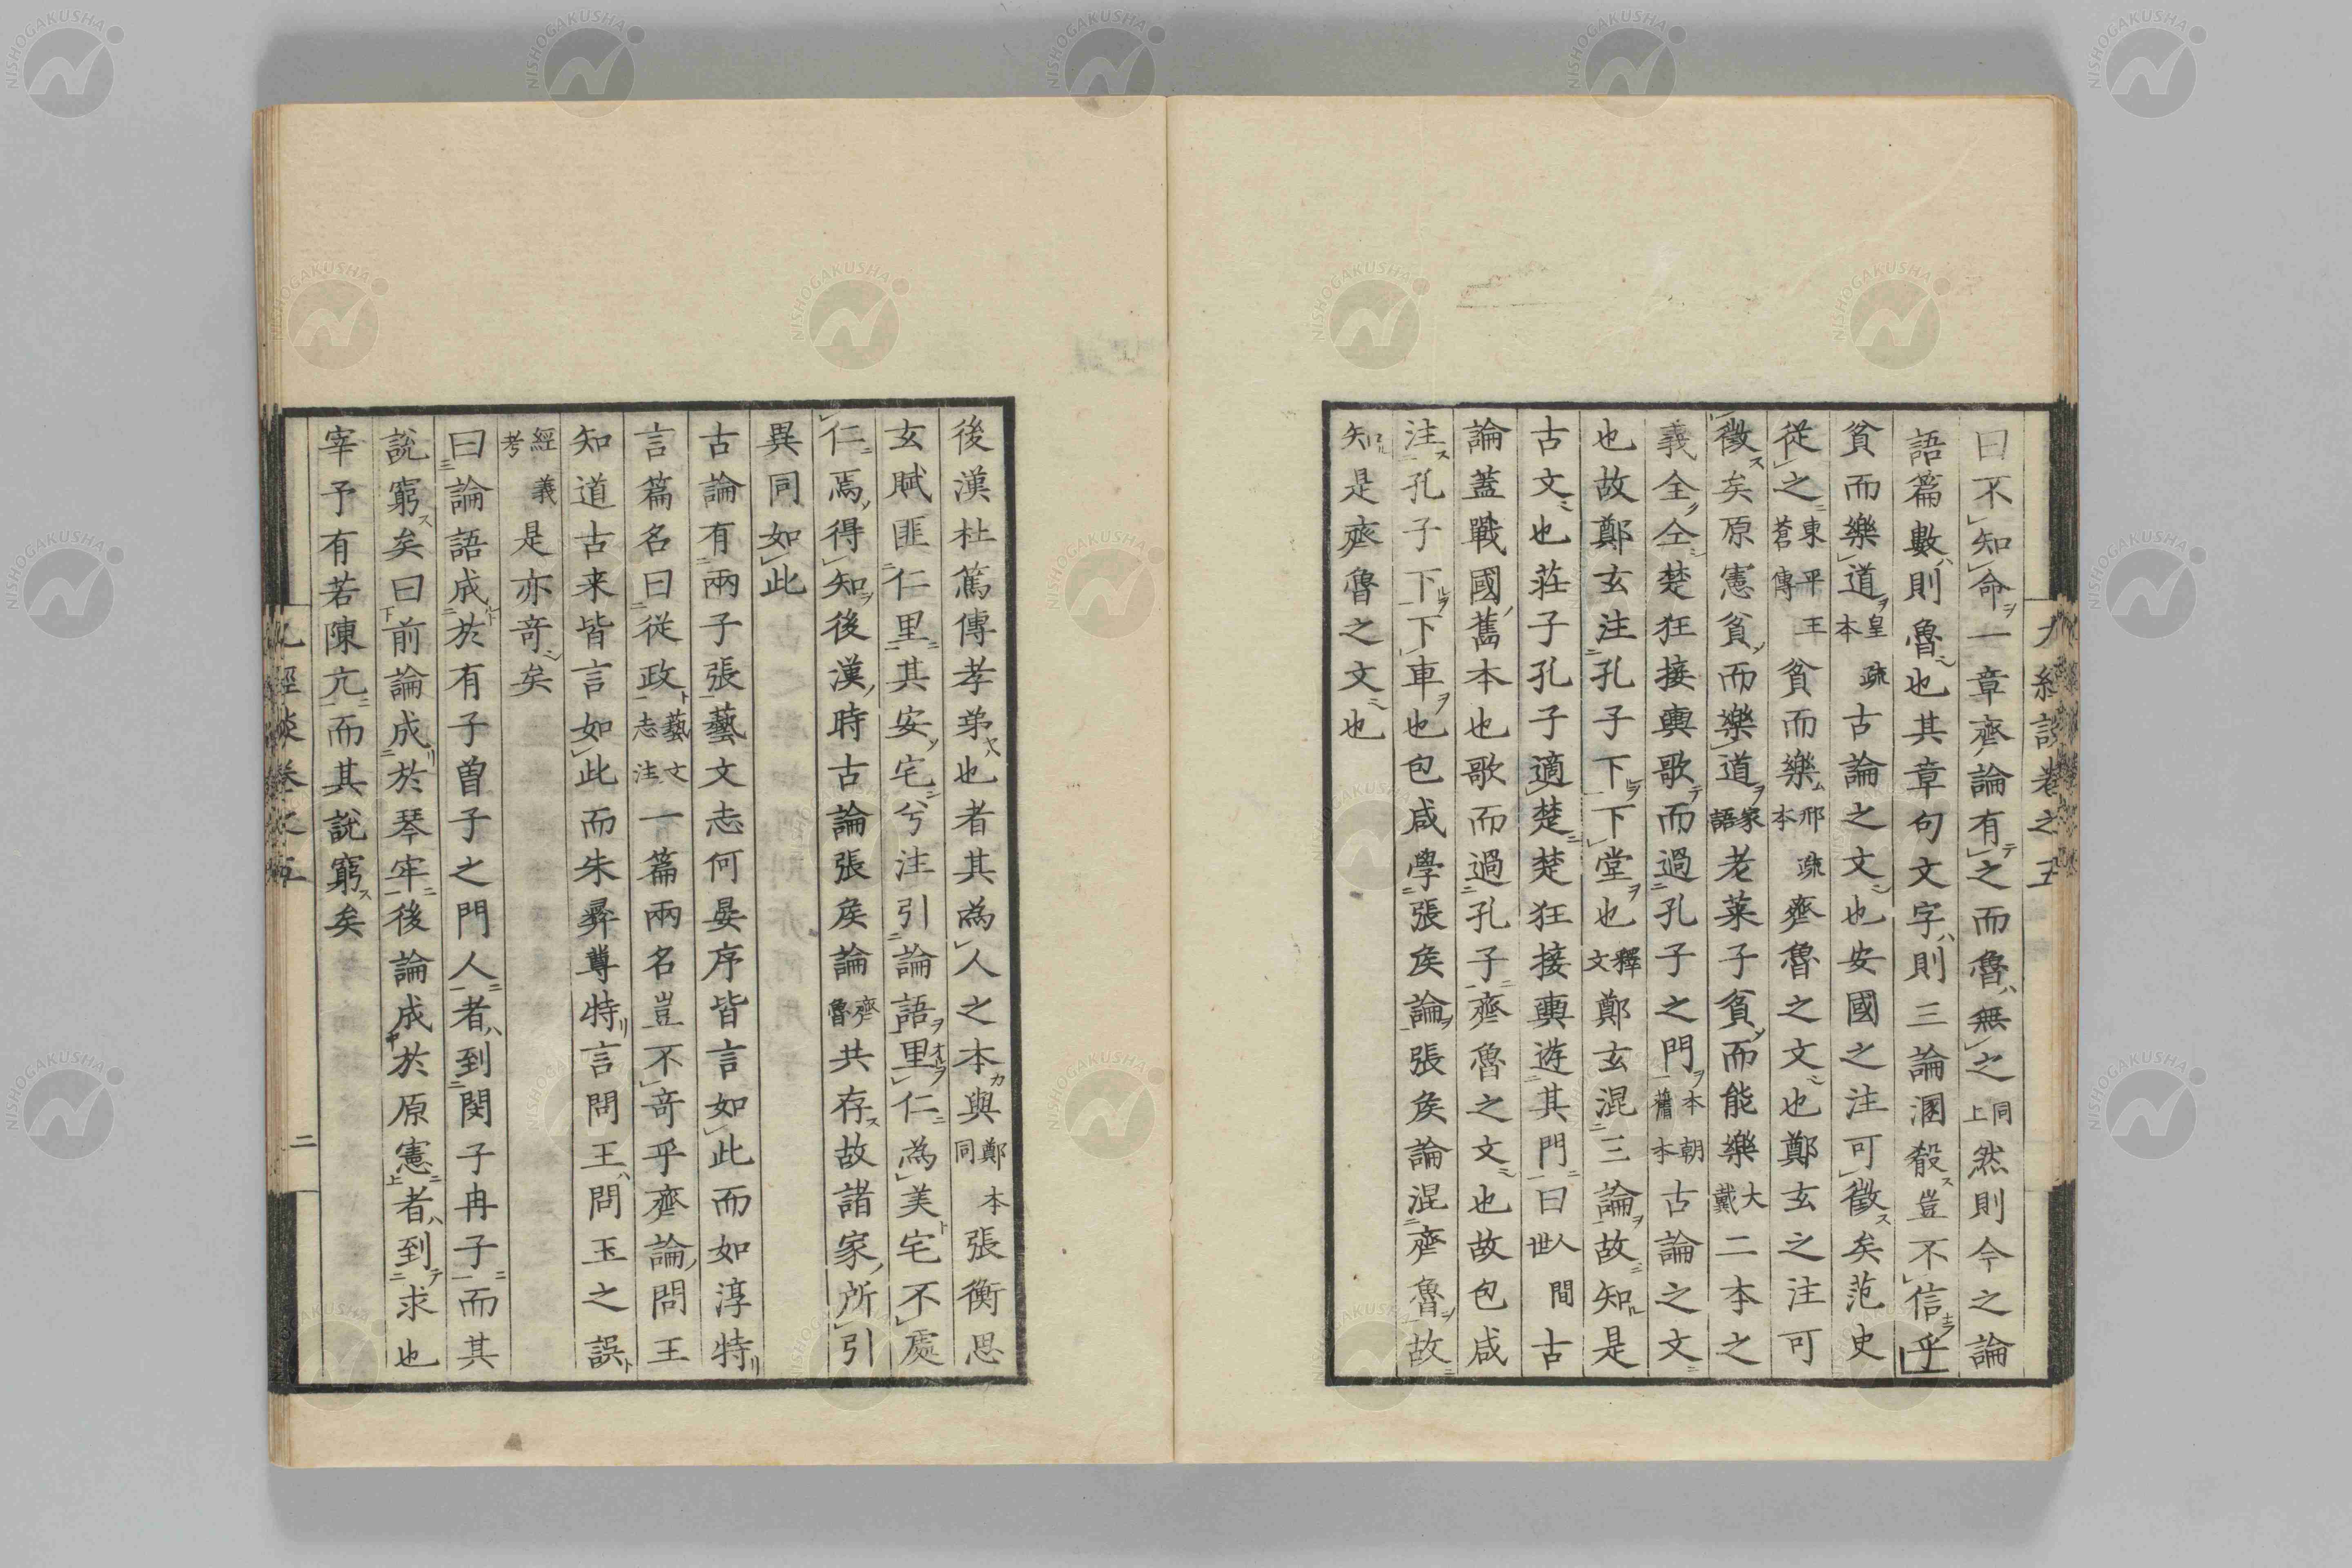 曰不知命一章齊論有之而魯無之同上然則今之論
語篇數則魯也其章句文字則三論溷殽豈不信乎
貧而樂道皇疏本古論之文也安國之注可徵矣范史
從之東平王蒼傳貧而樂邢疏本齊魯之文也鄭玄之注可
徵矣原憲貧而樂道家語老萊子貧而能樂大戴二本之
義全仝楚狂接輿歌而過孔子之門本朝舊本古論之文
也故鄭玄注孔子下下堂也釋文鄭玄混三論故知是
古文也莊子孔子適楚楚狂接輿遊其門曰人間世古
論蓋戰國舊本也歌而過孔子齊魯之文也故包咸
注孔子下下車也包咸學張矦論張矦論混齊魯故
知是齊魯之文也
後漢杜篤傳孝弟也者其為人之本與鄭本同張衡思
玄賦匪仁里其安宅兮注引論語里仁為美宅不處
仁焉得知後漢時古論張矦論齊魯共存故諸家所引
異同如此
古論有兩子張藝文志何晏序皆言如此而如淳特
言篇名曰從政藝文志注一篇兩名豈不奇乎齊論問王
知道古来皆言如此而朱彞尊特言問王問玉之誤
經義考是亦奇矣
曰論語成於有子曽子之門人者到閔子冉子而其
說窮矣曰前論成於琴牢後論成於原憲者到求也
宰予有若陳亢而其說窮矣
二